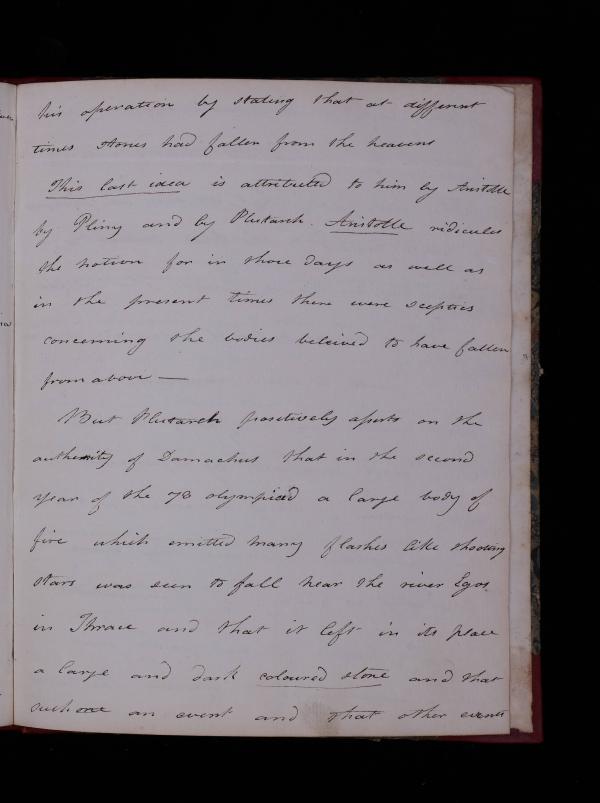 his operation by stating that at different
times stones had fallen from the heavens
This last idea is attributed to him by Aristotle
by Pliny and by Plutarch. Aristotle ridicules
the notion for in those days as well as
in the present times there were sceptics
concerning the bodies beleived to have fallen
from above —
But Plutarch positively asserts on the
authority of Damachus that in the second
year of the 78 olympiad a large body of
fire which emitted many flashes like shooting
stars was seen to fall near the river Egos
in Thrace and that it left in its place
a large and dark coloured stone and that
such an event and that other events